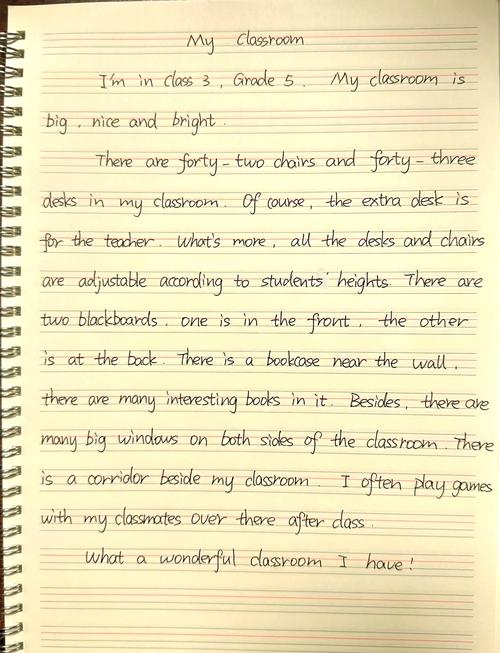 My Classroom
I'm in Class 3, Grade 5. My classroom is
big, nice and bright.
There are forty-two chairs and forty-three
desks in my classroom. Of course, the extra desk is
for the teacher. What's more, all the desks and chairs
are adjustable according to students' heights. There are
two blackboards, one is in the front, the other
is at the back. There is a bookcase near the wall,
there are many interesting books in it. Besides, there are
many big windows on both sides of the classroom. There
is a corridor beside my classroom. I often play games
with my classmates over there after class.
What a wonderful classroom I have!